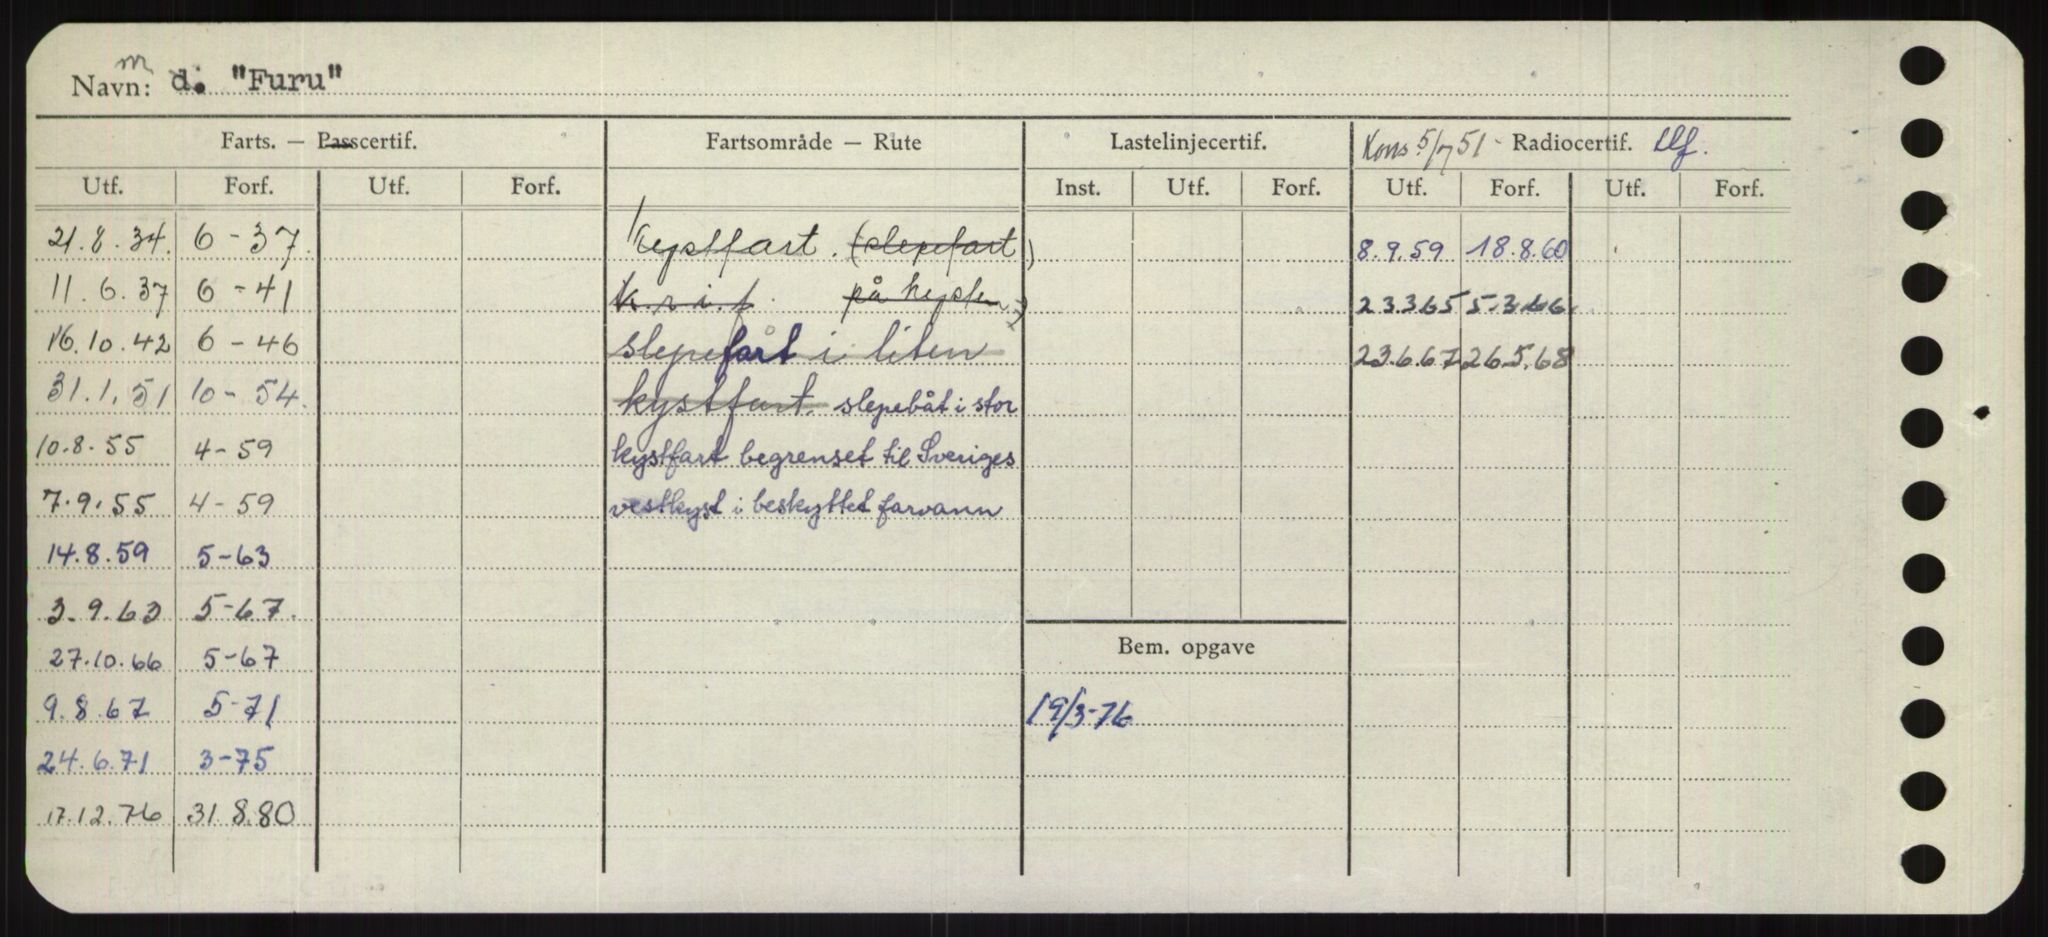 m
Navn: d. "Furu"
Farts. — Passcertif. Fartsområde — Rute Lastelinjecertif. Kons. 5/7 51 - Radiocertif. tlf.
Utf. Forf. Utf. Forf. Inst. Utf. Forf. Utf. Forf. Utf. Forf.
21.8.34. 6-37. Kystfart. (slepefart) 8.9.59 18.8.60
11.6.37 6-41 K.r.i.f. på kysten) 23.3.65 5.3.66.
16.10.42 6-46 slepefart i liten 23.6.67 26.5.68
31.1.51 10-54. kystfart. slepebåt i stor
10.8.55 4-59 kystfart begrenset til Sveriges
7.9.55 4-59 vestkyst i beskyttet farvann
14.8.59 5-63
3.9.63 5-67.
27.10.66 5-67 Bem. opgave
9.8.67 5-71 19/3-76
24.6.71 3-75
17.12.76 31.8.80